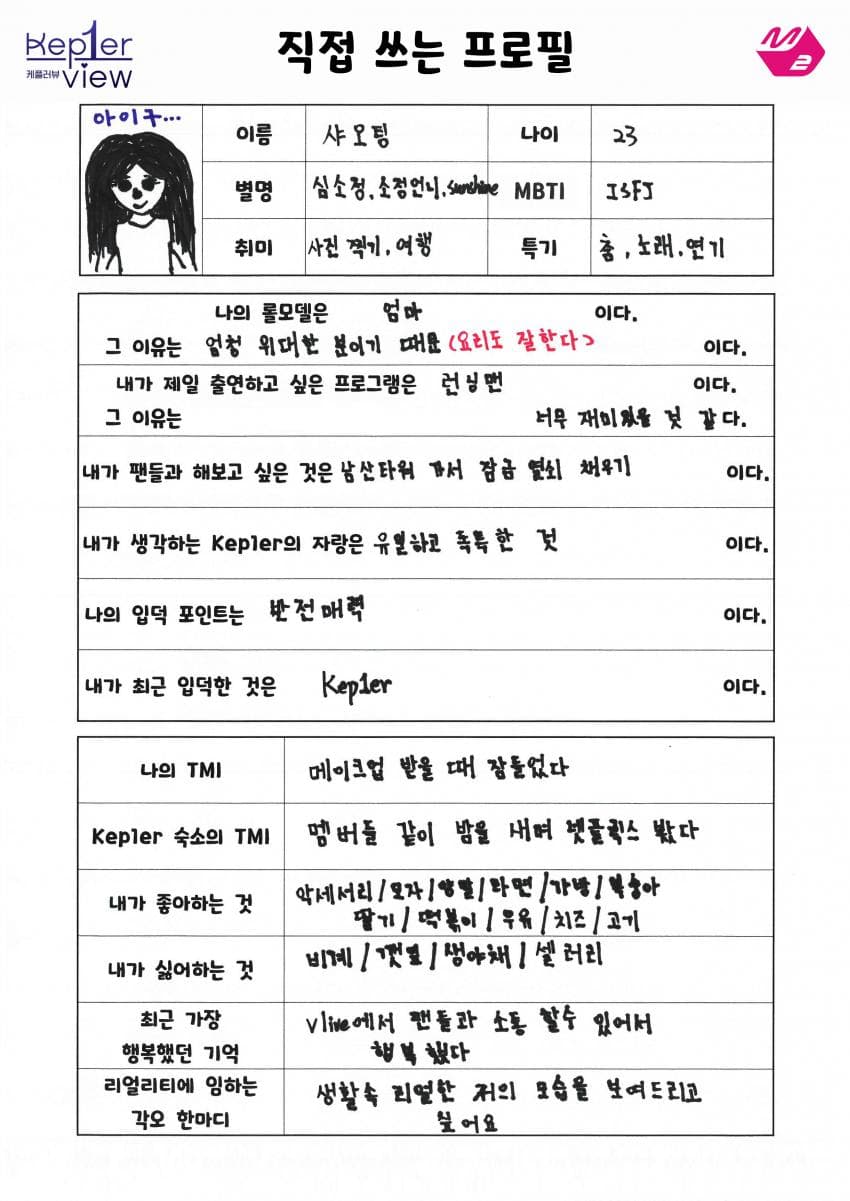 Kep1er
케플러뷰 view
직접 쓰는 프로필
M2
아이구...
이름 샤오팅 나이 23
별명 심소정, 소정언니, sunshine MBTI ISFJ
취미 사진 찍기, 여행 특기 춤, 노래, 연기
나의 롤모델은 엄마 이다.
그 이유는 엄청 위대한 분이기 때문 (요리도 잘한다) 이다.
내가 제일 출연하고 싶은 프로그램은 런닝맨 이다.
그 이유는 너무 재미있을 것 같다.
내가 팬들과 해보고 싶은 것은 남산타워 가서 잠금 열쇠 채우기 이다.
내가 생각하는 Kep1er의 자랑은 유일하고 독특한 것 이다.
나의 입덕 포인트는 반전매력 이다.
내가 최근 입덕한 것은 Kep1er 이다.
나의 TMI 메이크업 받을 때 잠들었다
Kep1er 숙소의 TMI 멤버들 같이 밤을 새며 넷플릭스 봤다
내가 좋아하는 것 악세서리/모자/양말/라면/가방/복숭아
딸기/떡볶이/우유/치즈/고기
내가 싫어하는 것 비계/깻잎/생야채/셀러리
최근 가장 vlive에서 팬들과 소통 할수 있어서
행복했던 기억 행복했다
리얼리티에 임하는 생활속 리얼한 저의 모습을 보여드리고
각오 한마디 싶어요